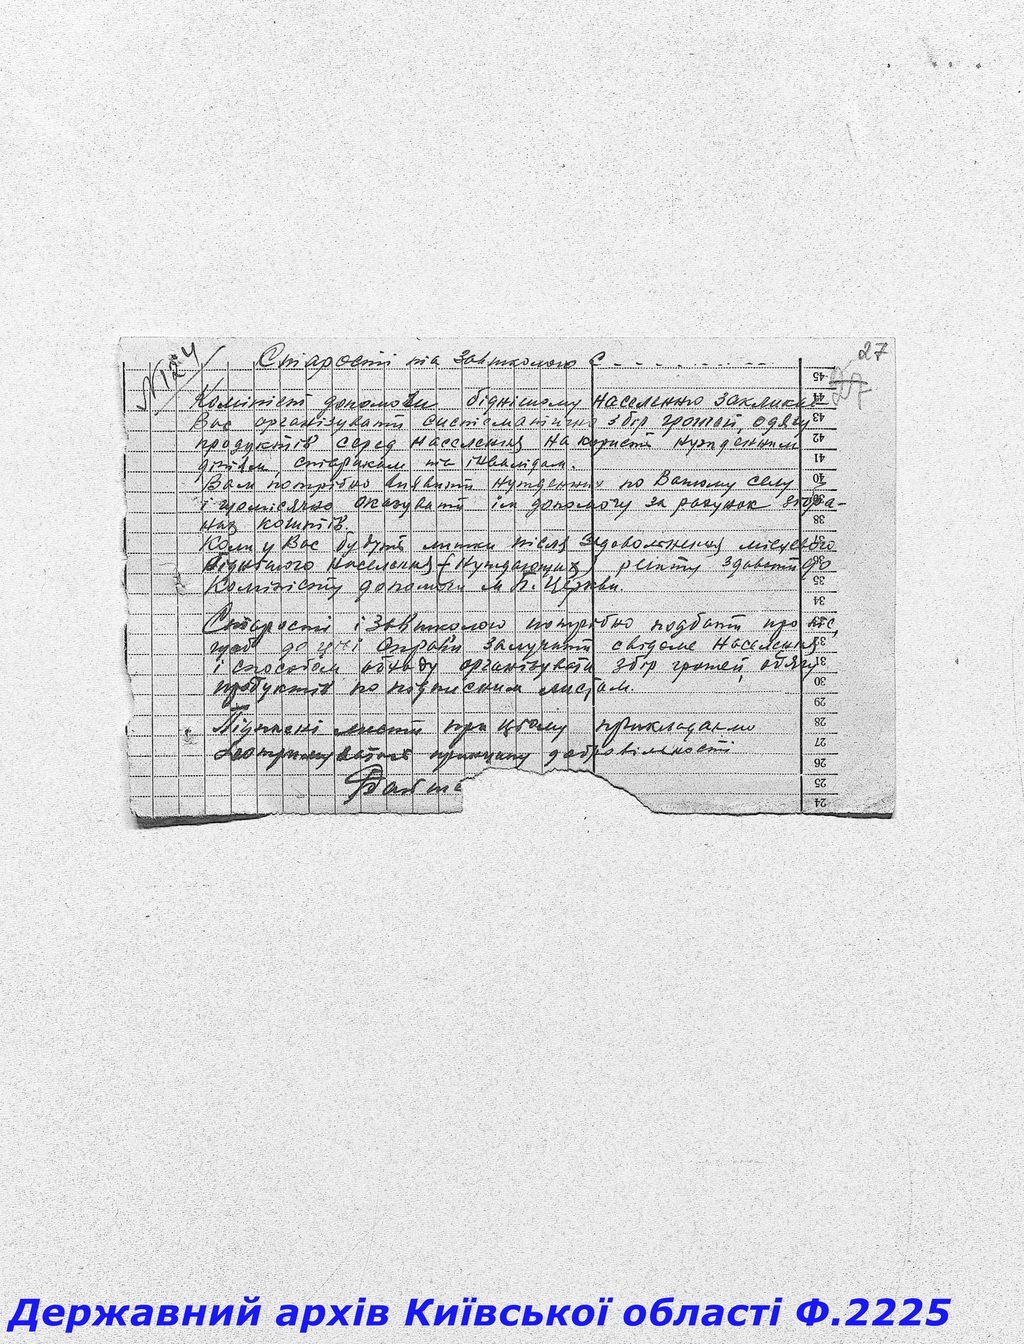 27
№ 124
Старості та завшколою с. - - - - - - - -
45
Комітет допомоги біднішому населенню закликає
44
Вас організувати систематично збір грошей, одягу
43
продуктів серед населення на користь нужденним
42
дітям, старикам та інвалідам.
41
Вам потрібно виявити нужденних по Вашому селу
40
і щомісячно оказувати їм допомогу за рахунок зібра-
39
них коштів.
38
Коли у Вас будуть лишки після задоволення місцевого
37
біднішого населення (нуждающих) решту здавати до
36
Комітету допомоги м. Б. Церкви.
35
34
Старості і Завшколою потрібно подбати про те,
33
щоб до цієї справи залучити свідоме населення
32
і способом обходу організувати збір грошей, одягу
31
продуктів по підписним листам.
30
29
Підписні листи при цьому прикладаємо
28
27
принципу добровільності
26
25
24
Державний архів Київської області Ф.2225